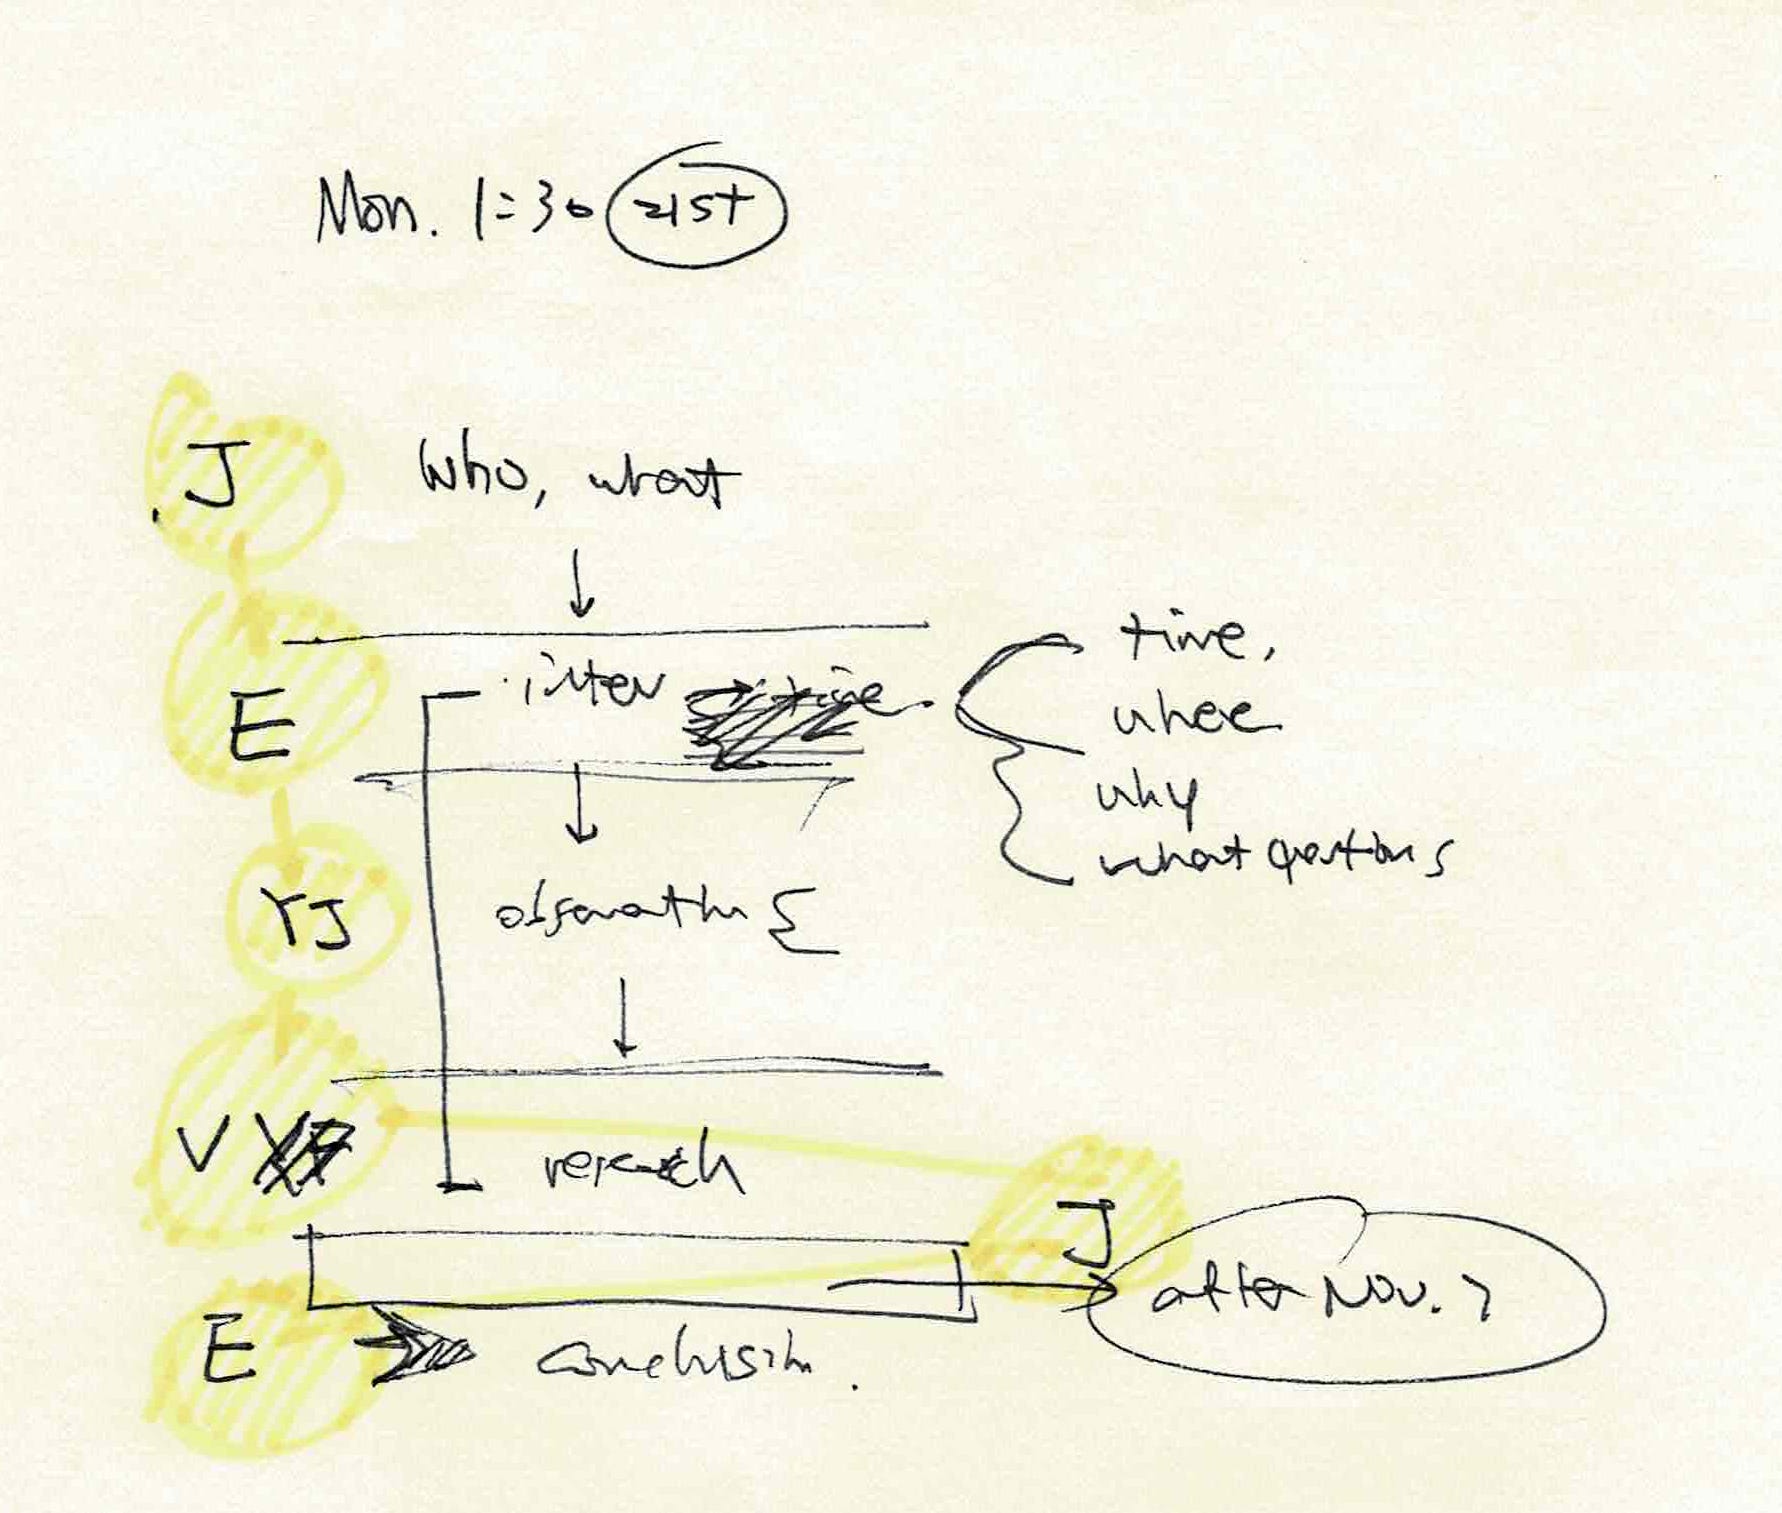 Mon. 1:30 21st
J who, what
time,
E inter
where
why
what questions
YJ observation
V research
J
after Nov. 7
E conclusion.